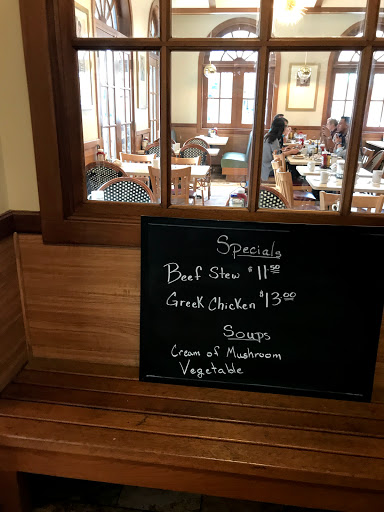 Specials
Beef Stew $11.50
Greek Chicken $13.00
Soups
Cream of Mushroom
Vegetable